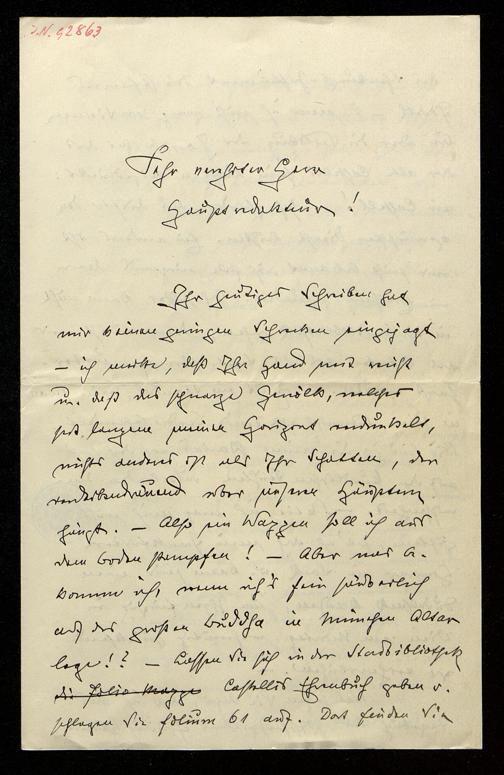 I.N. 92863
Sehr verehrter Herr
Hauptredakteur!
Ihr heutiges Schreiben hat
mir keinen geringen Schrecken eingejagt
– ich merkte, daß Ihr Hand weit reicht
u. daß das schwarze Gewölk, welches
seit langem meinen Horizont verdunkelt,
nichts anderes ist als Ihr Schatten, der
verderbendräuend über unseren Häuptern
hängt. – Also ein Wappen soll ich aus
dem Boden stampfen! – Aber was be-
komme ich, wenn ich's fein säuberlich
auf des großen Buddha in München Altar
lege!? – Lassen Sie sich in der Stadtbibliothek
die Folio Mappe Castellis Ehrenbuch geben u.
schlagen Sie folium 61 auf. Dort finden Sie